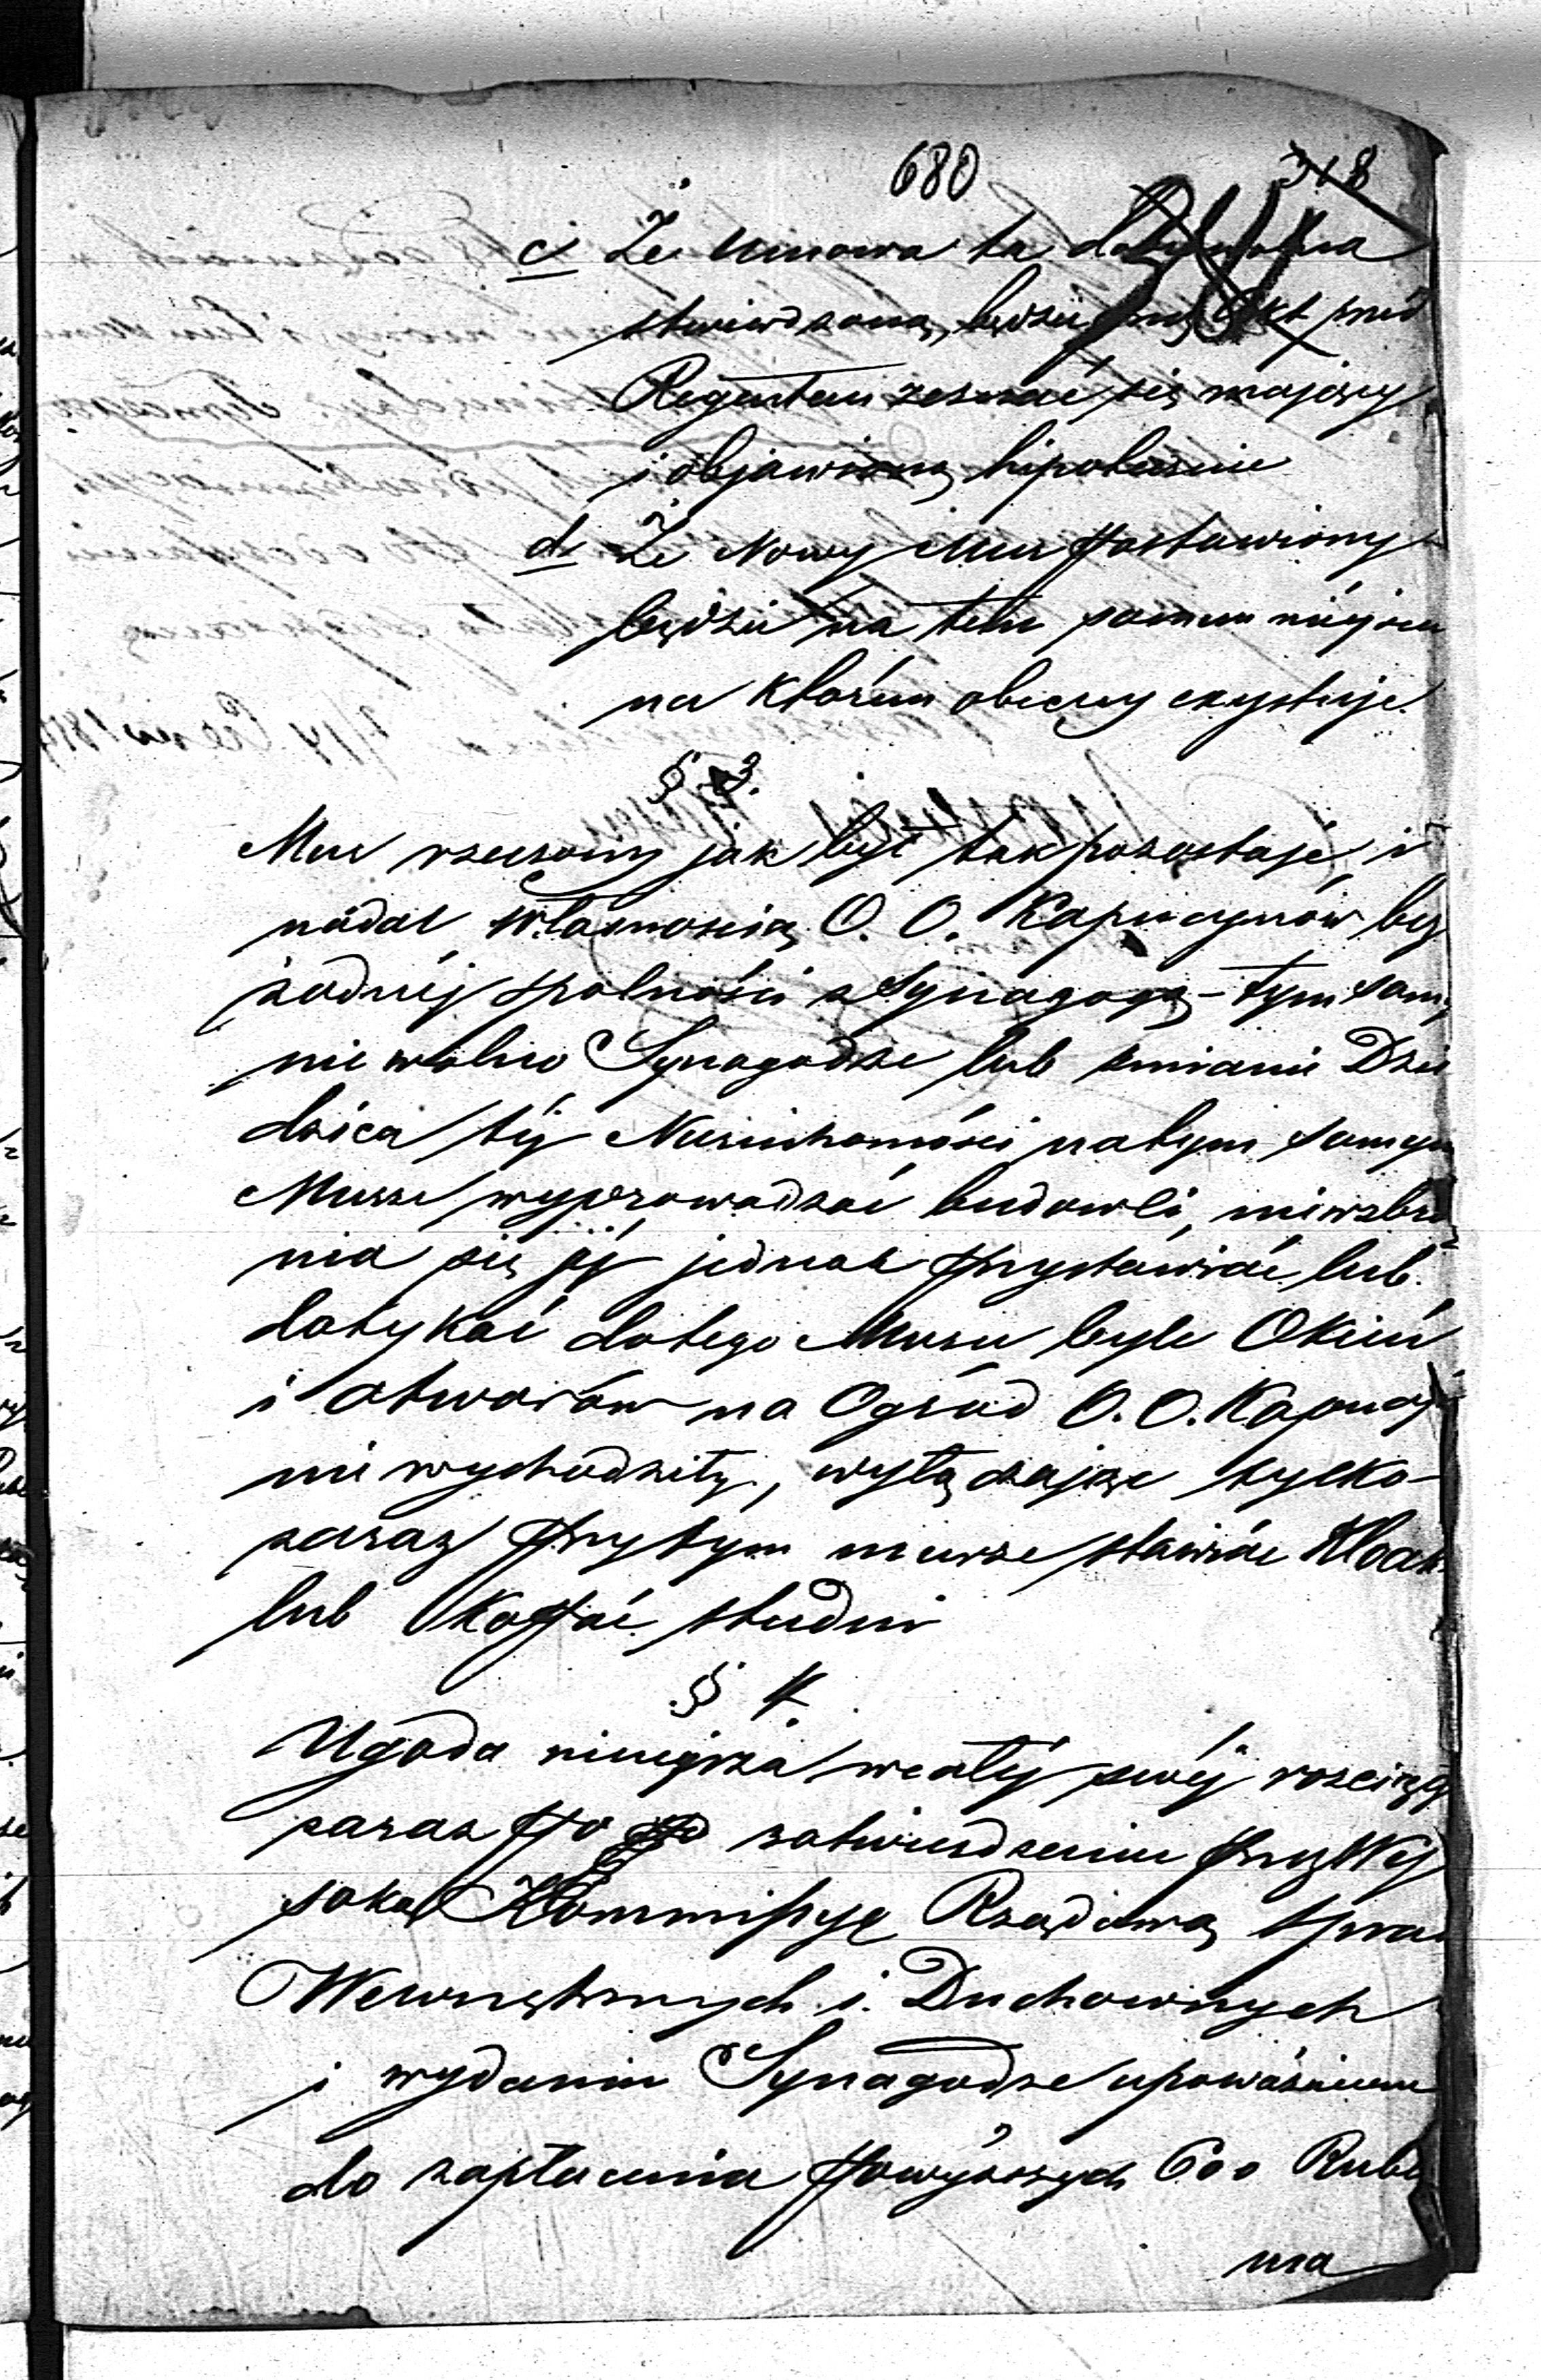 680
318
c/ Że Umowa ta
stwierdzoną będzie przez Akt przed
Regentem zeznać się mający
i objawioną hipotecznie
d/ Że Nowy Mur postawiony
będzie na tem samem miejscu
na którém obecny exystuje.
§ 3.
Mur rzeczony jak był tak pozostaje i
nadal własnością O. O. Kapucynów bez
żadnéj spolności z Synagogą – tym sam,
nie wolno Synagodze lub zmianie Dzie
dzica téj Nieruchomości na tym samym
Murze wyprowadzać budowli, nie wzbra
nia się jéj jednak przystawiać lub
dotykać do tego Muru byle Okien
i otworów na Ogród O. O. Kapucy
nie wychodziły, wyłączając tylko
zaraz przy tym murze stawiać Kloak
lub Kopać studni
§ 4.
Ugoda niniejsza w całéj swéj rozciągł
zaraz po zatwierdzeniu przez Wy
soką Kommissyę Rządową Spraw
Wewnętrznych i Duchownych
i wydaniu Synagodze upoważnienia
do zapłacenia powyższych 600 Rubli
ma